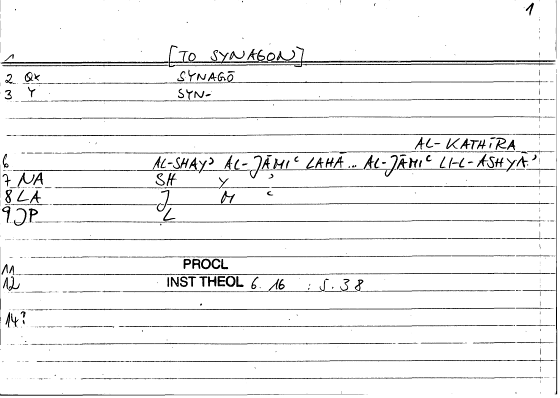 1
1 [TO SYNAGON]
2 QX SYNAGŌ
3 Y SYN-
AL-KATHĪRA
6 AL-SHAYʾ AL-JĀMIʿ LAHĀ... AL-JĀMIʿ LI-L-ASHYĀʾ
7 NA SH Y ʾ
8 LA J M ʿ
9 JP L
11 PROCL
12 INST THEOL 6.16 : 5.38
14?